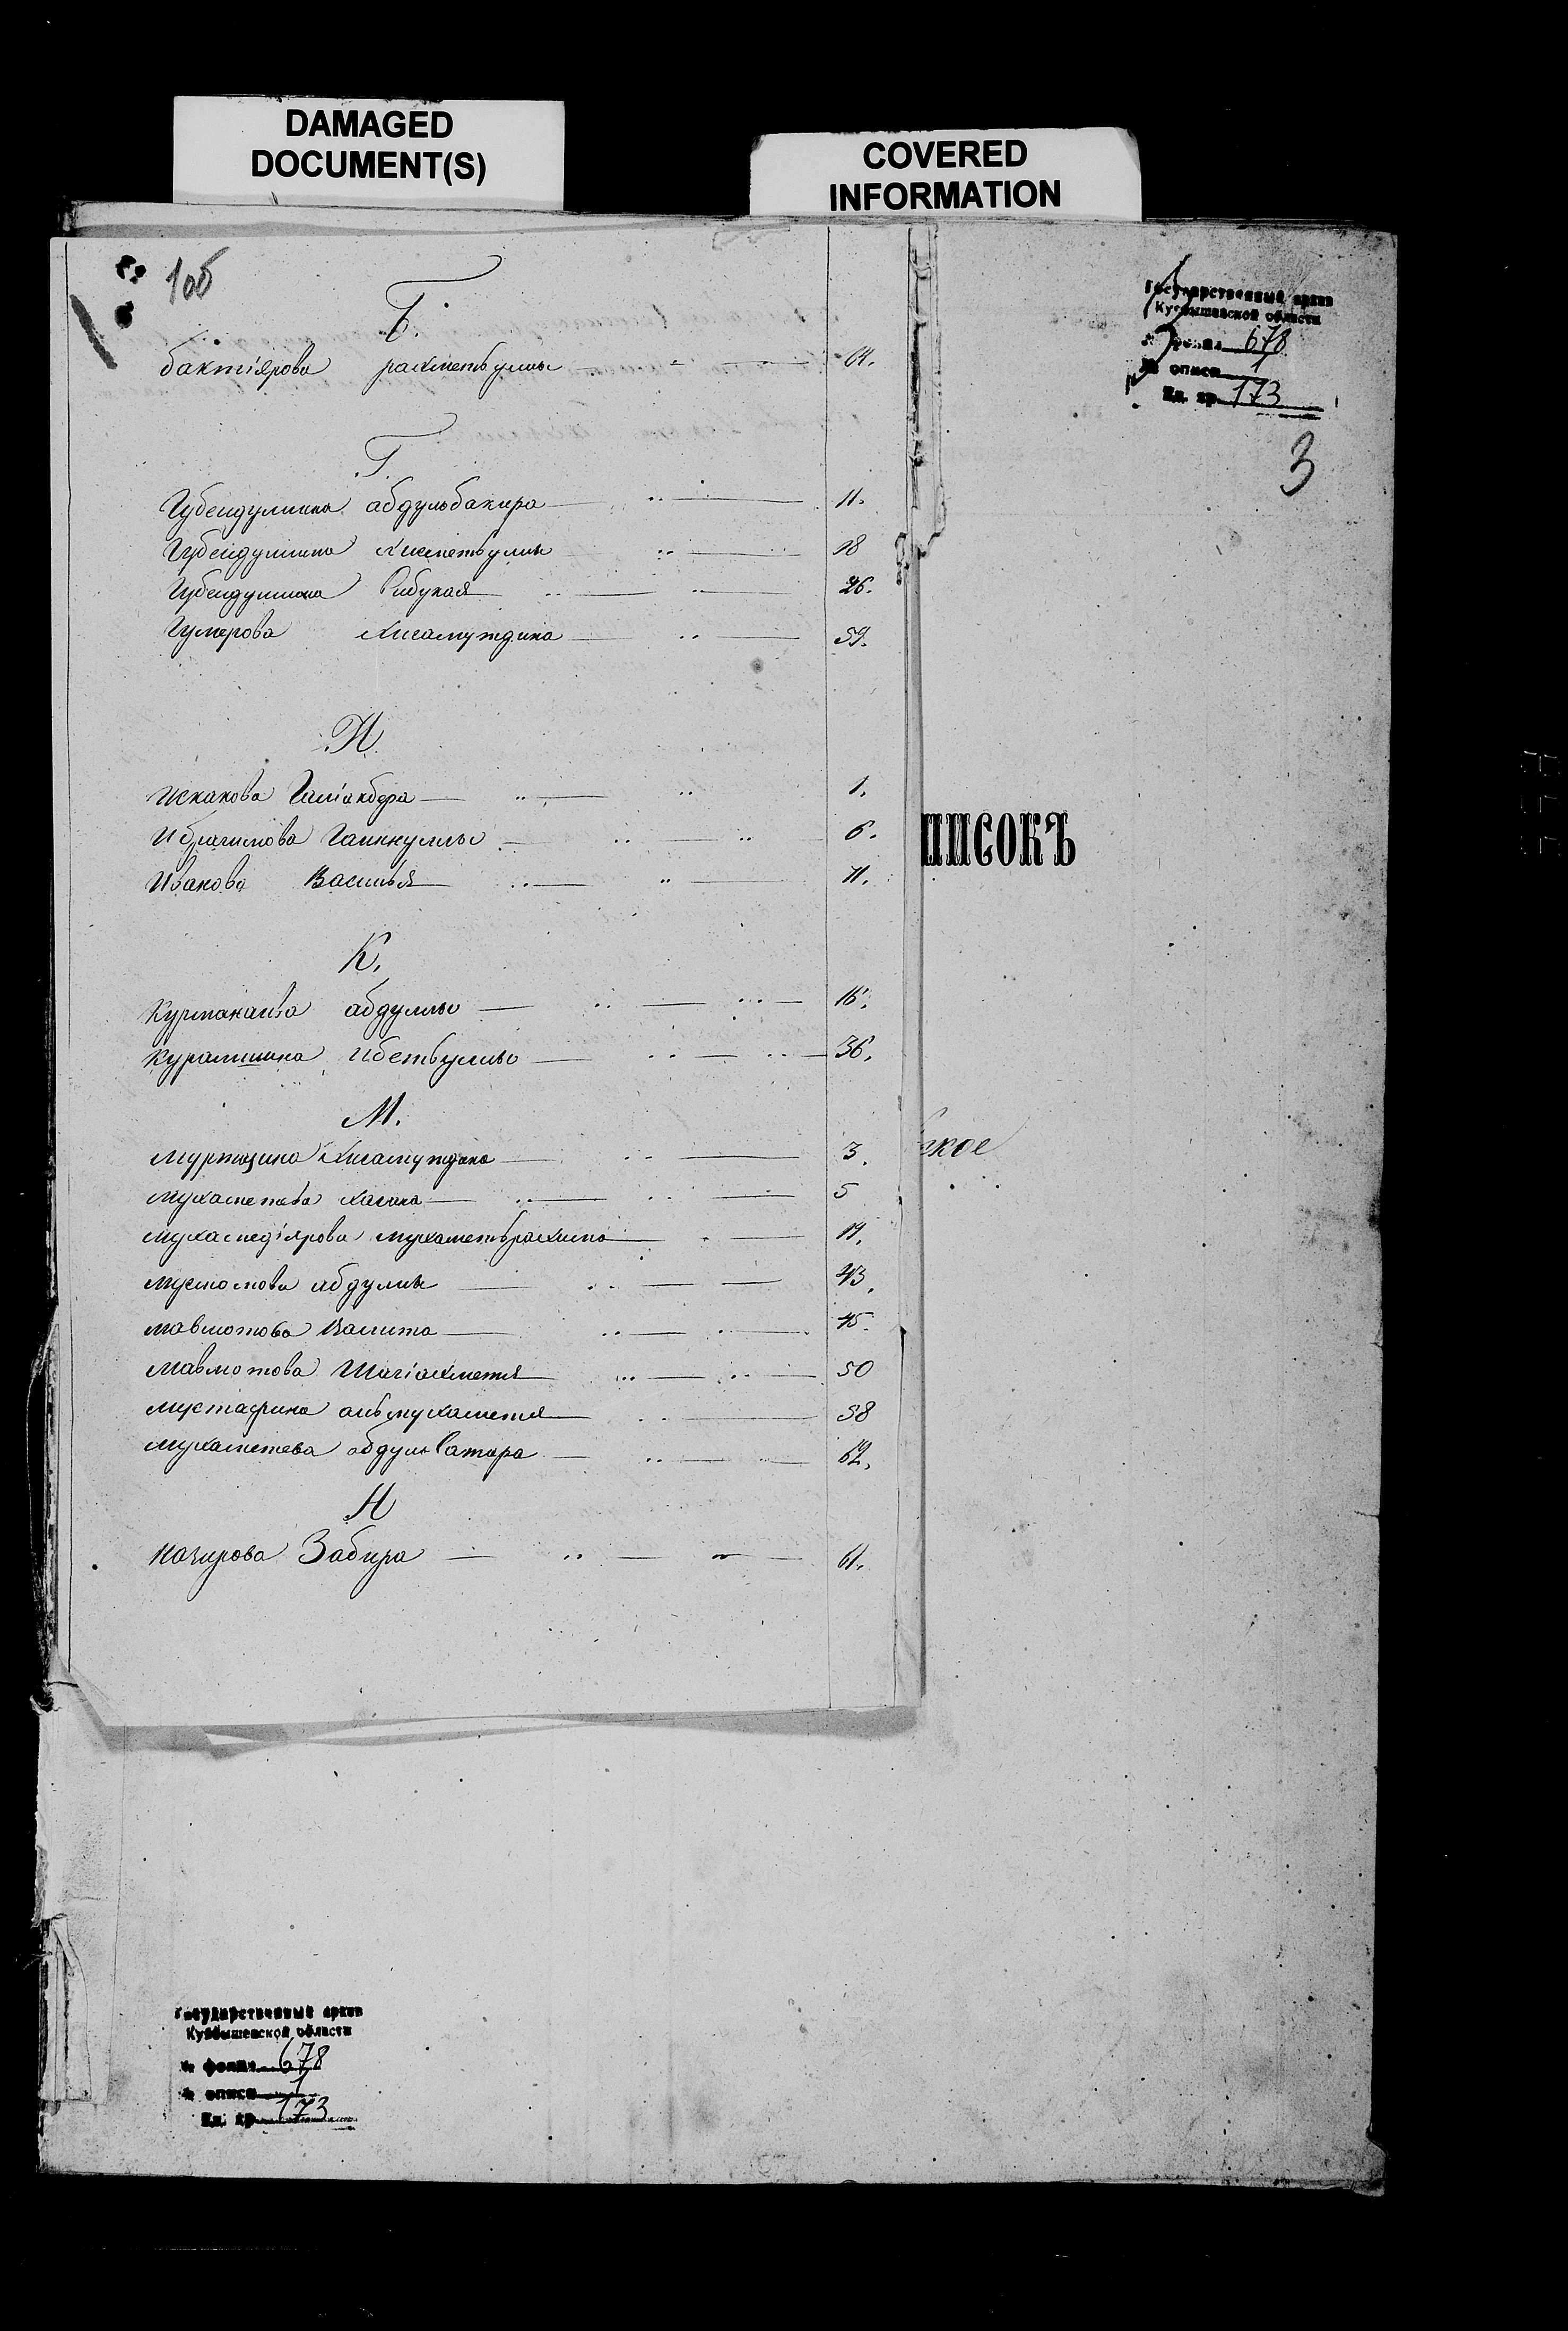 DAMAGED
DOCUMENT(S)
COVERED
INFORMATION
1об
Б.
бактіярова рахметьуллы 64.
Г.
Губейдуллина абдульбакира 11.
Губейдуллина Хисметьуллы 18
Губейдуллина 26.
Гумерова Хисамутдина 59.
И
Искакова Галіакбера 1.
Ибрагимова Гайнуллы 6.
Иванова Василья 11.
К.
Курманаева абдуллы 16.
Курамшина Ибетьуллы 36.
М.
Муртазина Хисамутдина 3.
Мухаметева Хасана 5
Мухамедіярова мухаметьрахима 19.
абдуллы 43.
Мавлютова Валита 45.
Мавлютова Шагіахметя 50
Мустафина альмухаметя 58
Мухаметева абдулъ Сатара 62.
Н
Назирова Забира 61.
Государственный архив
Куйбышевской области
№ фонда 678
№ описи 1
Ед. хр. 173
3
ПИСОКЪ
ское
Государственный архив
Куйбышевской области
№ фонда 678
№ описи 1
Ед. хр. 173